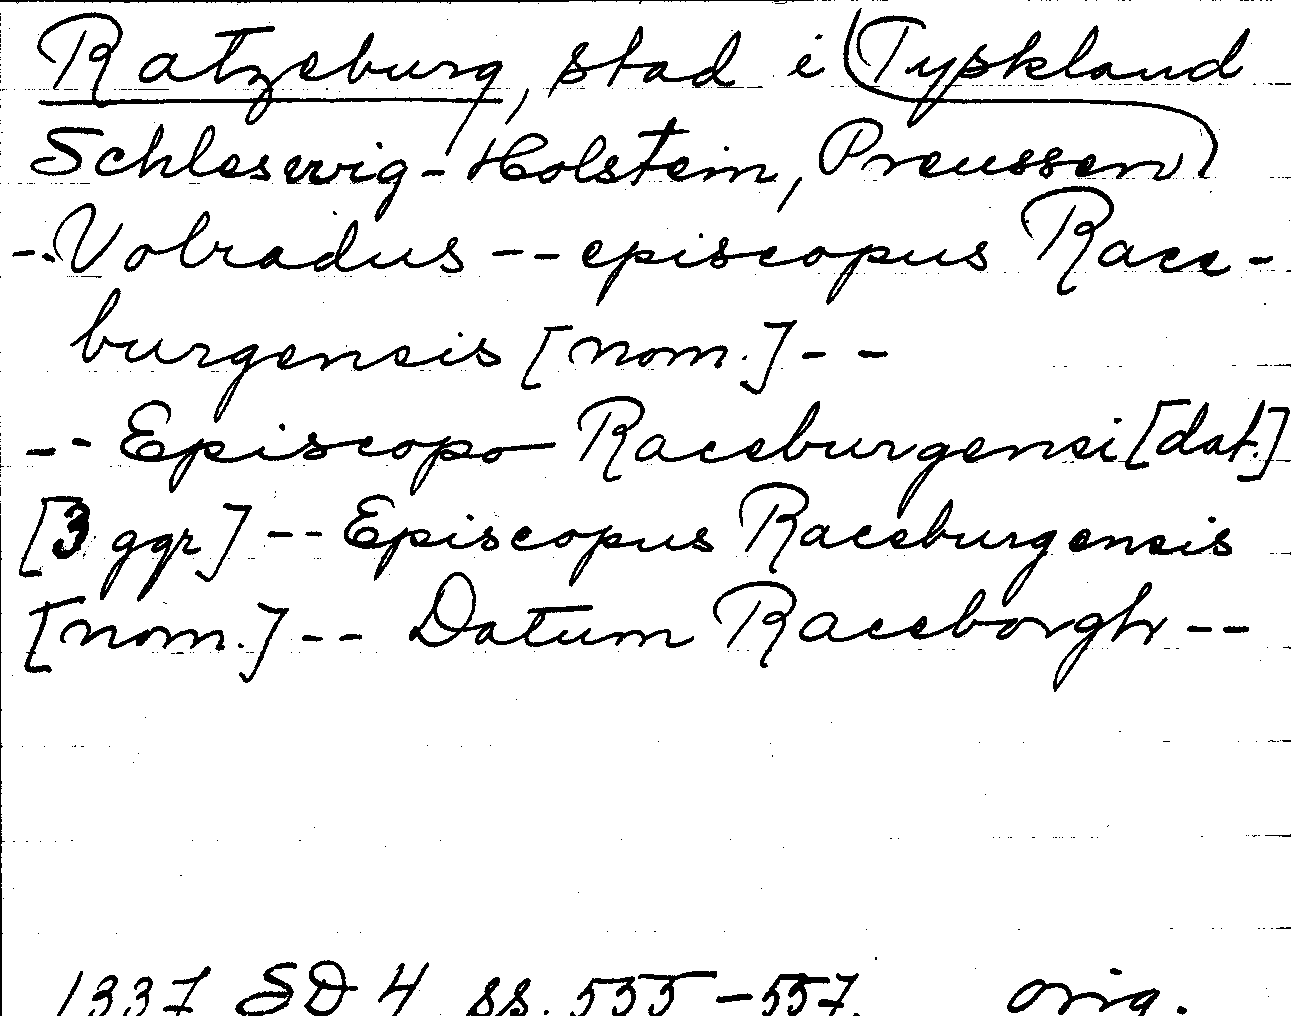 Ratzeburg, stad i (Tyskland
Schleswig-Holstein, Preussen)
-- Volradus -- episcopus Race-
burgensis [nom.] --
-- Episcopo Raceburgensi [dat.]
[3 ggr] -- Episcopus Raceburgensis
[nom.] -- Datum Raceborgh --
1337 SD 4 ss. 555-557. orig.